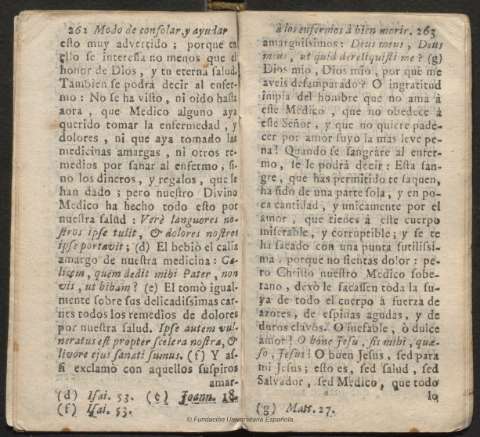 262 Modo de consolar, y ayudar
esto muy advertido; porque en
ello se interesa no menos que el
honor de Dios, y tu eterna salud.
Tambien se podrà decir al enfer-
mo: No se ha visto, ni oìdo hasta
aora, que Medico alguno aya
querido tomar la enfermedad, y
dolores, ni que aya tomado las
medicinas amargas, ni otros re-
medios por sanar al enfermo, si-
no los dineros, y regalos, que le
han dado; pero nuestro Divino
Medico ha hecho todo esto por
nuestra salud: Verè languores no-
stros ipse tulit, & dolores nostros
ipse portavit; (d) El bebiò el caliz
amargo de nuestra medicina: Ca-
licem, quem dedit mihi Pater, non
vis, ut bibam? (e) El tomò igual-
mente sobre sus delicadissimas car-
nes todos los remedios de dolores
por nuestra salud. Ipse autem vul-
neratus est propter scelera nostra, &
livore ejus sanati sumus. (f) Y as-
si exclamò con aquellos suspiros
amar-
(d) Isai. 53. (e) Joann. 18.
(f) Isai. 53.
à los enfermos à bien morir. 263
amarguissimos: Deus meus, Deus
meus, ut quid dereliquisti me? (g)
Dios mio, Dios mio, por què me
aveis desamparado? O ingratitud
impia del hombre que no ama à
este Medico, que no obedece à
este Señor, y que no quiere pade-
cer por amor suyo la mas leve pe-
na! Quando se sangràre al enfer-
mo, se le podrà decir: Esta san-
gre, que has permitido te saquen,
ha sido de una parte sola, y en po-
ca cantidad, y unicamente por el
amor, que tienes à este cuerpo
miserable, y corruptible; y se te
ha sacado con una punta sutilissi-
ma, porque no sientas dolor: pe-
ro Christo nuestro Medico sobe-
rano, dexò le sacassen toda la su-
ya de todo el cuerpo à fuerza de
azotes, de espinas agudas, y de
duros clavos. O inefable, ò dulce
amor! O bone Jesu, sis mihi, quæ-
so, Jesus! O buen Jesus, sed para
mi Jesus; esto es, sed salud, sed
Salvador, sed Medico, que todo
lo
(g) Matt. 27.
© Fundación Universitaria Española